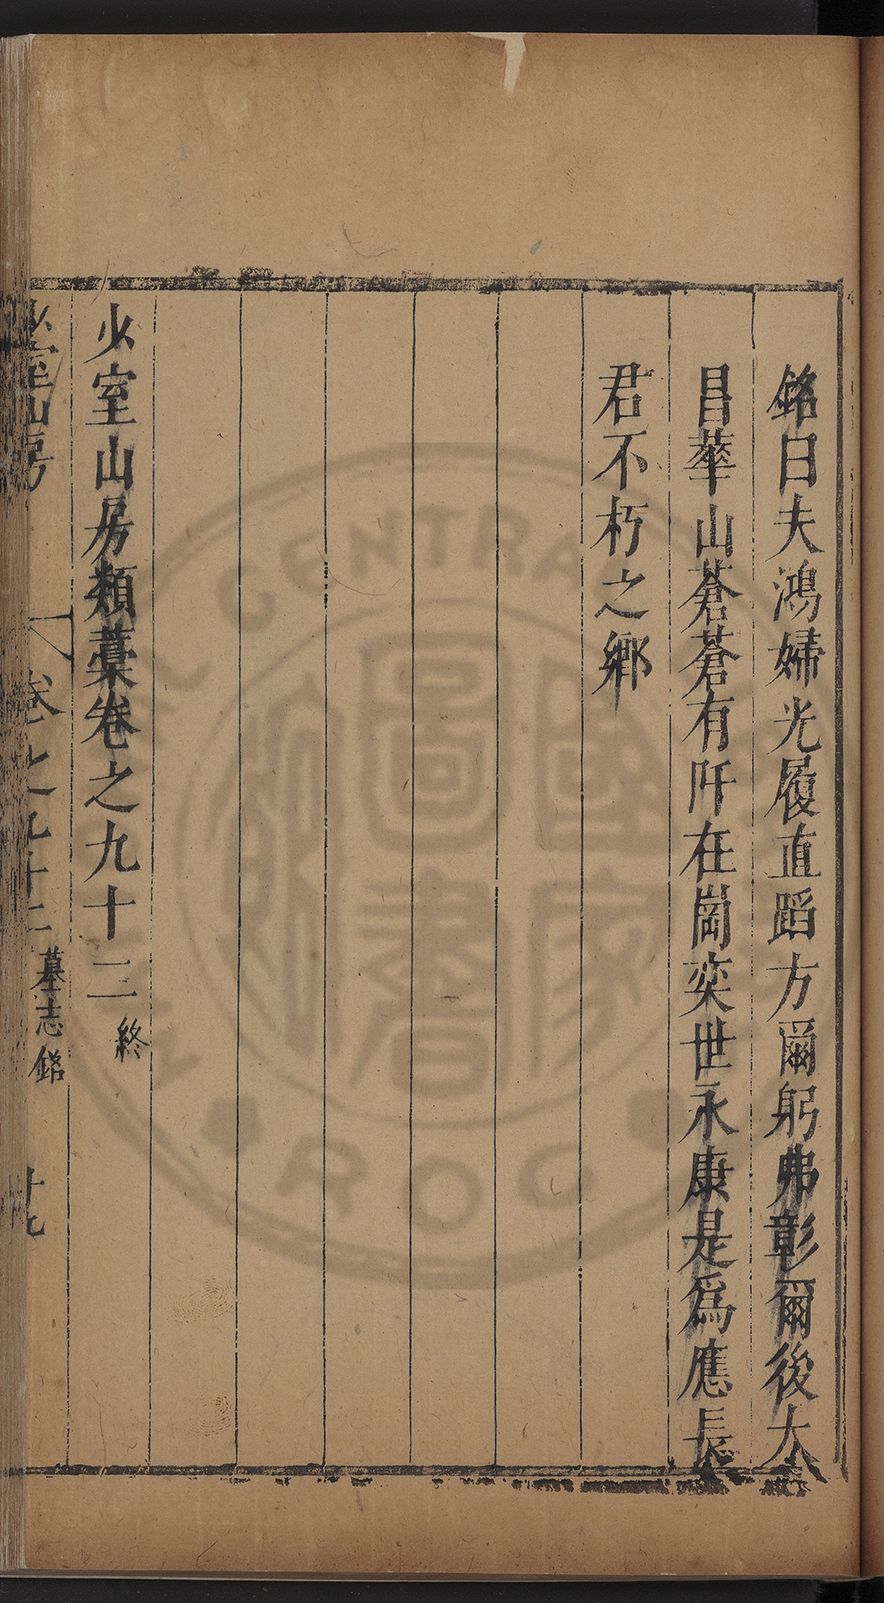 銘曰夫鴻婦光履直蹈方爾躬弗彰爾後大
昌華山蒼蒼有阡在崗奕世永康是爲應長
君不朽之鄉
少室山房類藁卷之九十二終
少室山房 卷之九十二 墓志銘 十九